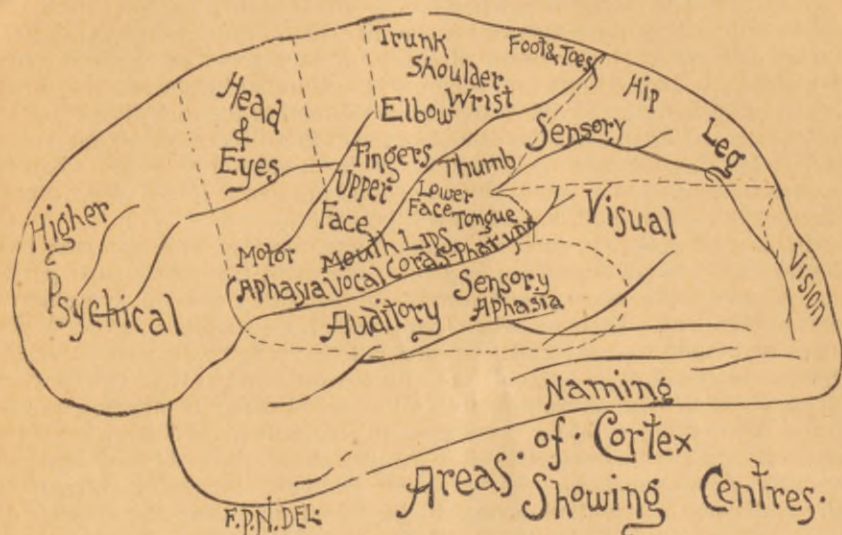 Trunk
Shoulder
Elbow Wrist
Foot & Toes
Hip
Leg
Head
&
Eyes
Fingers
Thumb
Sensory
Upper
Face
Lower
Face Tongue
Visual
Vision
Higher
Psychical
Motor
Aphasia
Mouth Lips
Vocal Cords-Pharynx
Auditory
Sensory
Aphasia
Naming
Areas. of. Cortex
Showing Centres.
F.P.N. DEL.